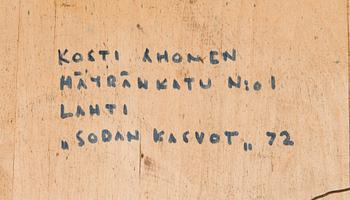 KOSTI AHONEN
HÄYRÄNKATU N:o 1
LAHTI
„SODAN KASVOT„ 72